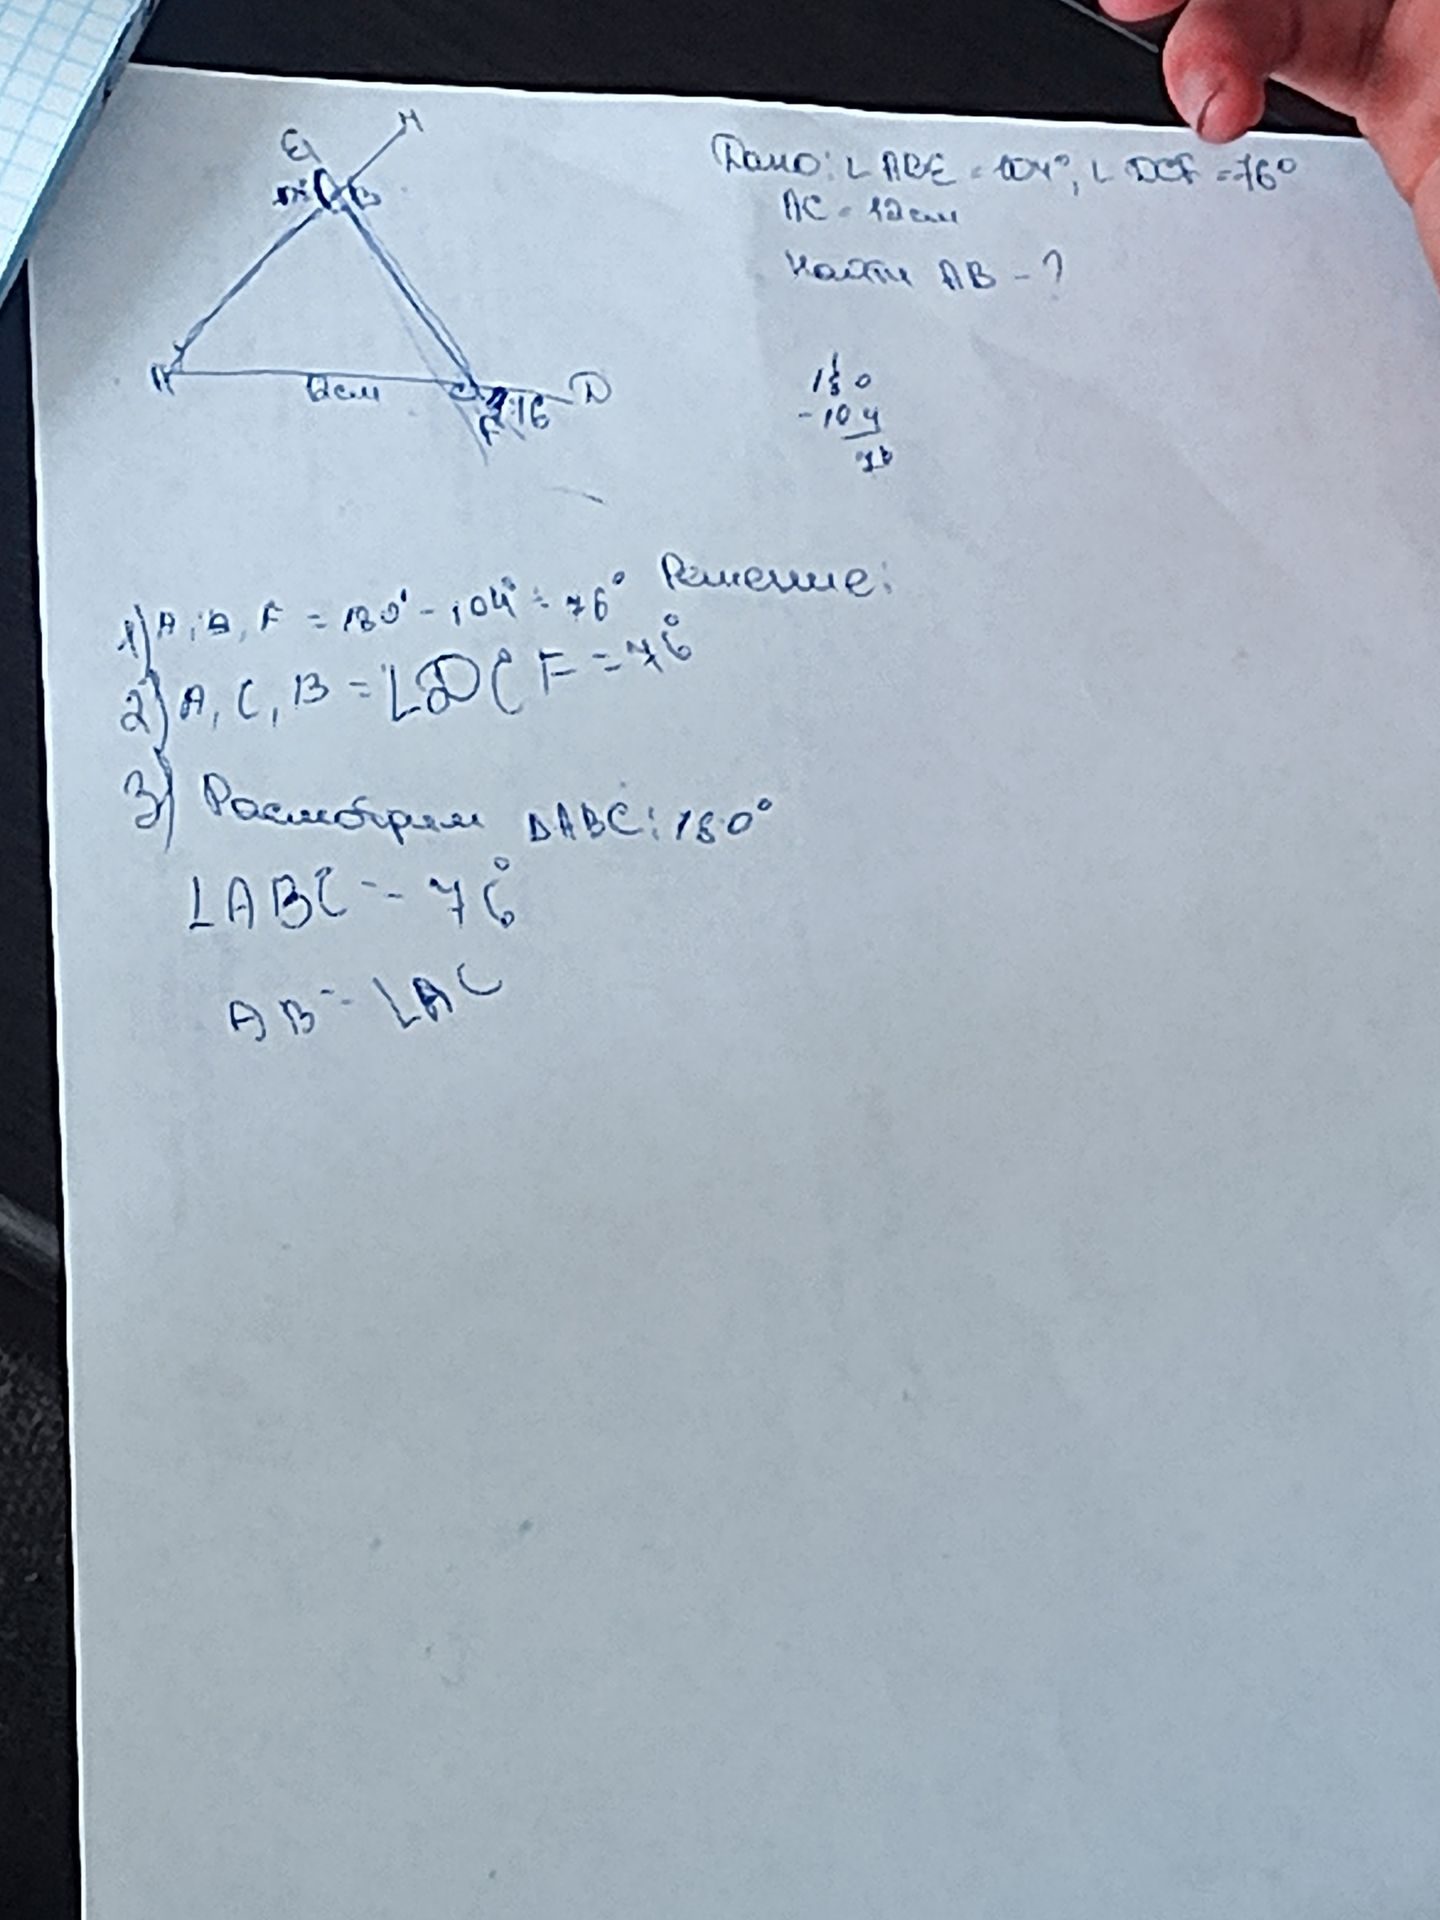 E
M
B
A
12см
C
D
F
76
Дано: ∟ ABE = 104°, ∟ DCF = 76°
AC = 12см
Найти AB - ?
180
- 104
76
Решение:
1) A, B, F = 180° - 104° = 76°
2) A, C, B = ∟DCF = 76°
3) Расмотрим ΔABC: 180°
∟ABC = 76°
AB = ∟AC